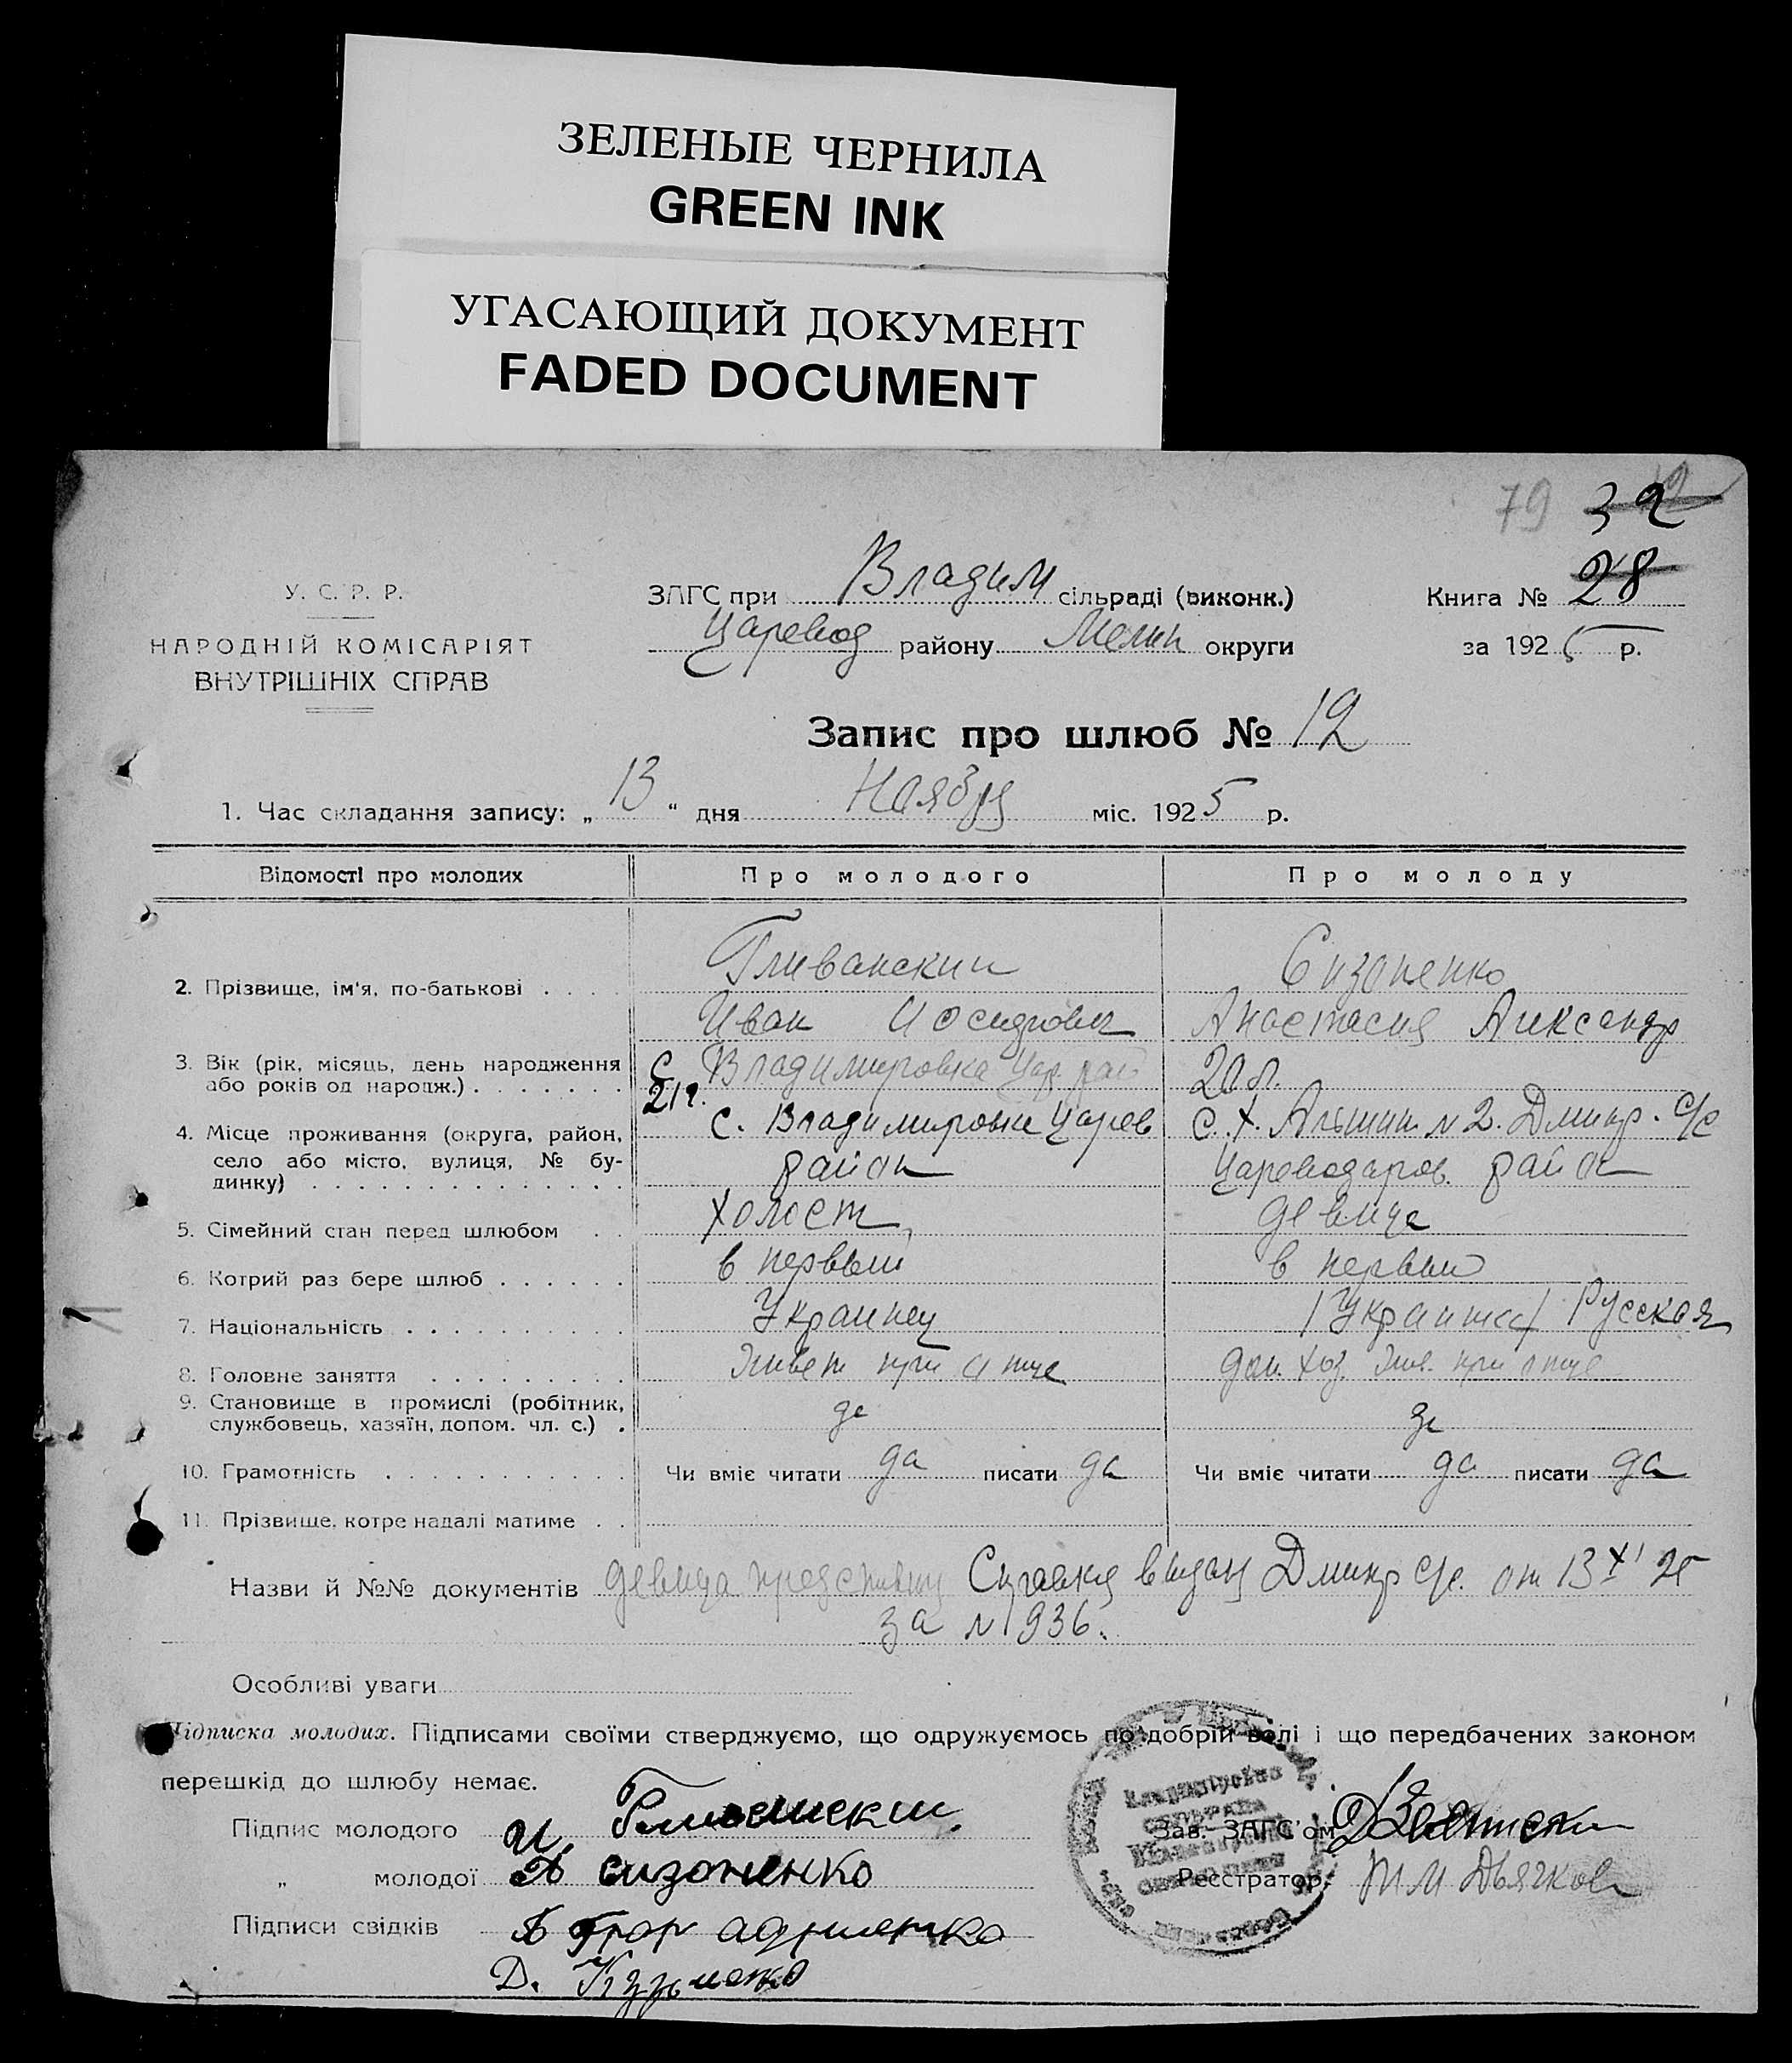 ЗЕЛЕНЫЕ ЧЕРНИЛА
GREEN INK
УГАСАЮЩИЙ ДОКУМЕНТ
FADED DOCUMENT
79 32
У. С. Р. Р.
НАРОДНІЙ КОМІСАРІЯТ
ВНУТРІШНІХ СПРАВ
ЗАГС при Владим сільраді (виконк.)
Царевод району Мелит округи
Книга № 28
за 1925 р.
Запис про шлюб № 12
1. Час складання запису: „ 13 “ дня Ноября міс. 1925 р.
Відомості про молодих Про молодого Про молоду
2. Прізвище, ім'я, по-батькові . . . .
Гливанский Сизоненко
Иван Иосидрович Анастасия Александр
3. Вік (рік, місяць, день народження або років од народж.) . . . . . . .
С Владимировка Цар рай
21 г.
20 л.
4. Місце проживання (округа, район, село або місто, вулиця, № будинку) . . . . . . . . . . . . . .
с. Владимировке Царев
район
С. Х. № 2. Дмитр. С/С
Цареводаров. район
5. Сімейний стан перед шлюбом . . холост девица
6. Котрий раз бере шлюб . . . . . . в первый в первый
7. Національність . . . . . . . . . . Украинец /Украинка/ Русская
8. Головне заняття . . . . . . . . . Живет при отце дом. хоз. жив. при отце
9. Становище в промислі (робітник, службовець, хазяїн, допом. чл. с.) .
10. Грамотність . . . . . . . . . . . Чи вміє читати да писати да Чи вміє читати да писати да
11. Прізвище, котре надалі матиме . .
Назви й №№ документів девица Справка выдан Дмитр С/С. от 13 XI 25
за № 936.
Особливі уваги
Підписка молодих. Підписами своїми стверджуємо, що одружуємось по добрій волі і що передбачених законом
перешкід до шлюбу немає.
Підпис молодого И. Гливанский.
„ молодої А Сизоненко
Підписи свідків
Д. Кузьменко
Зав. ЗАГС'ом
Реєстратор Дьячков